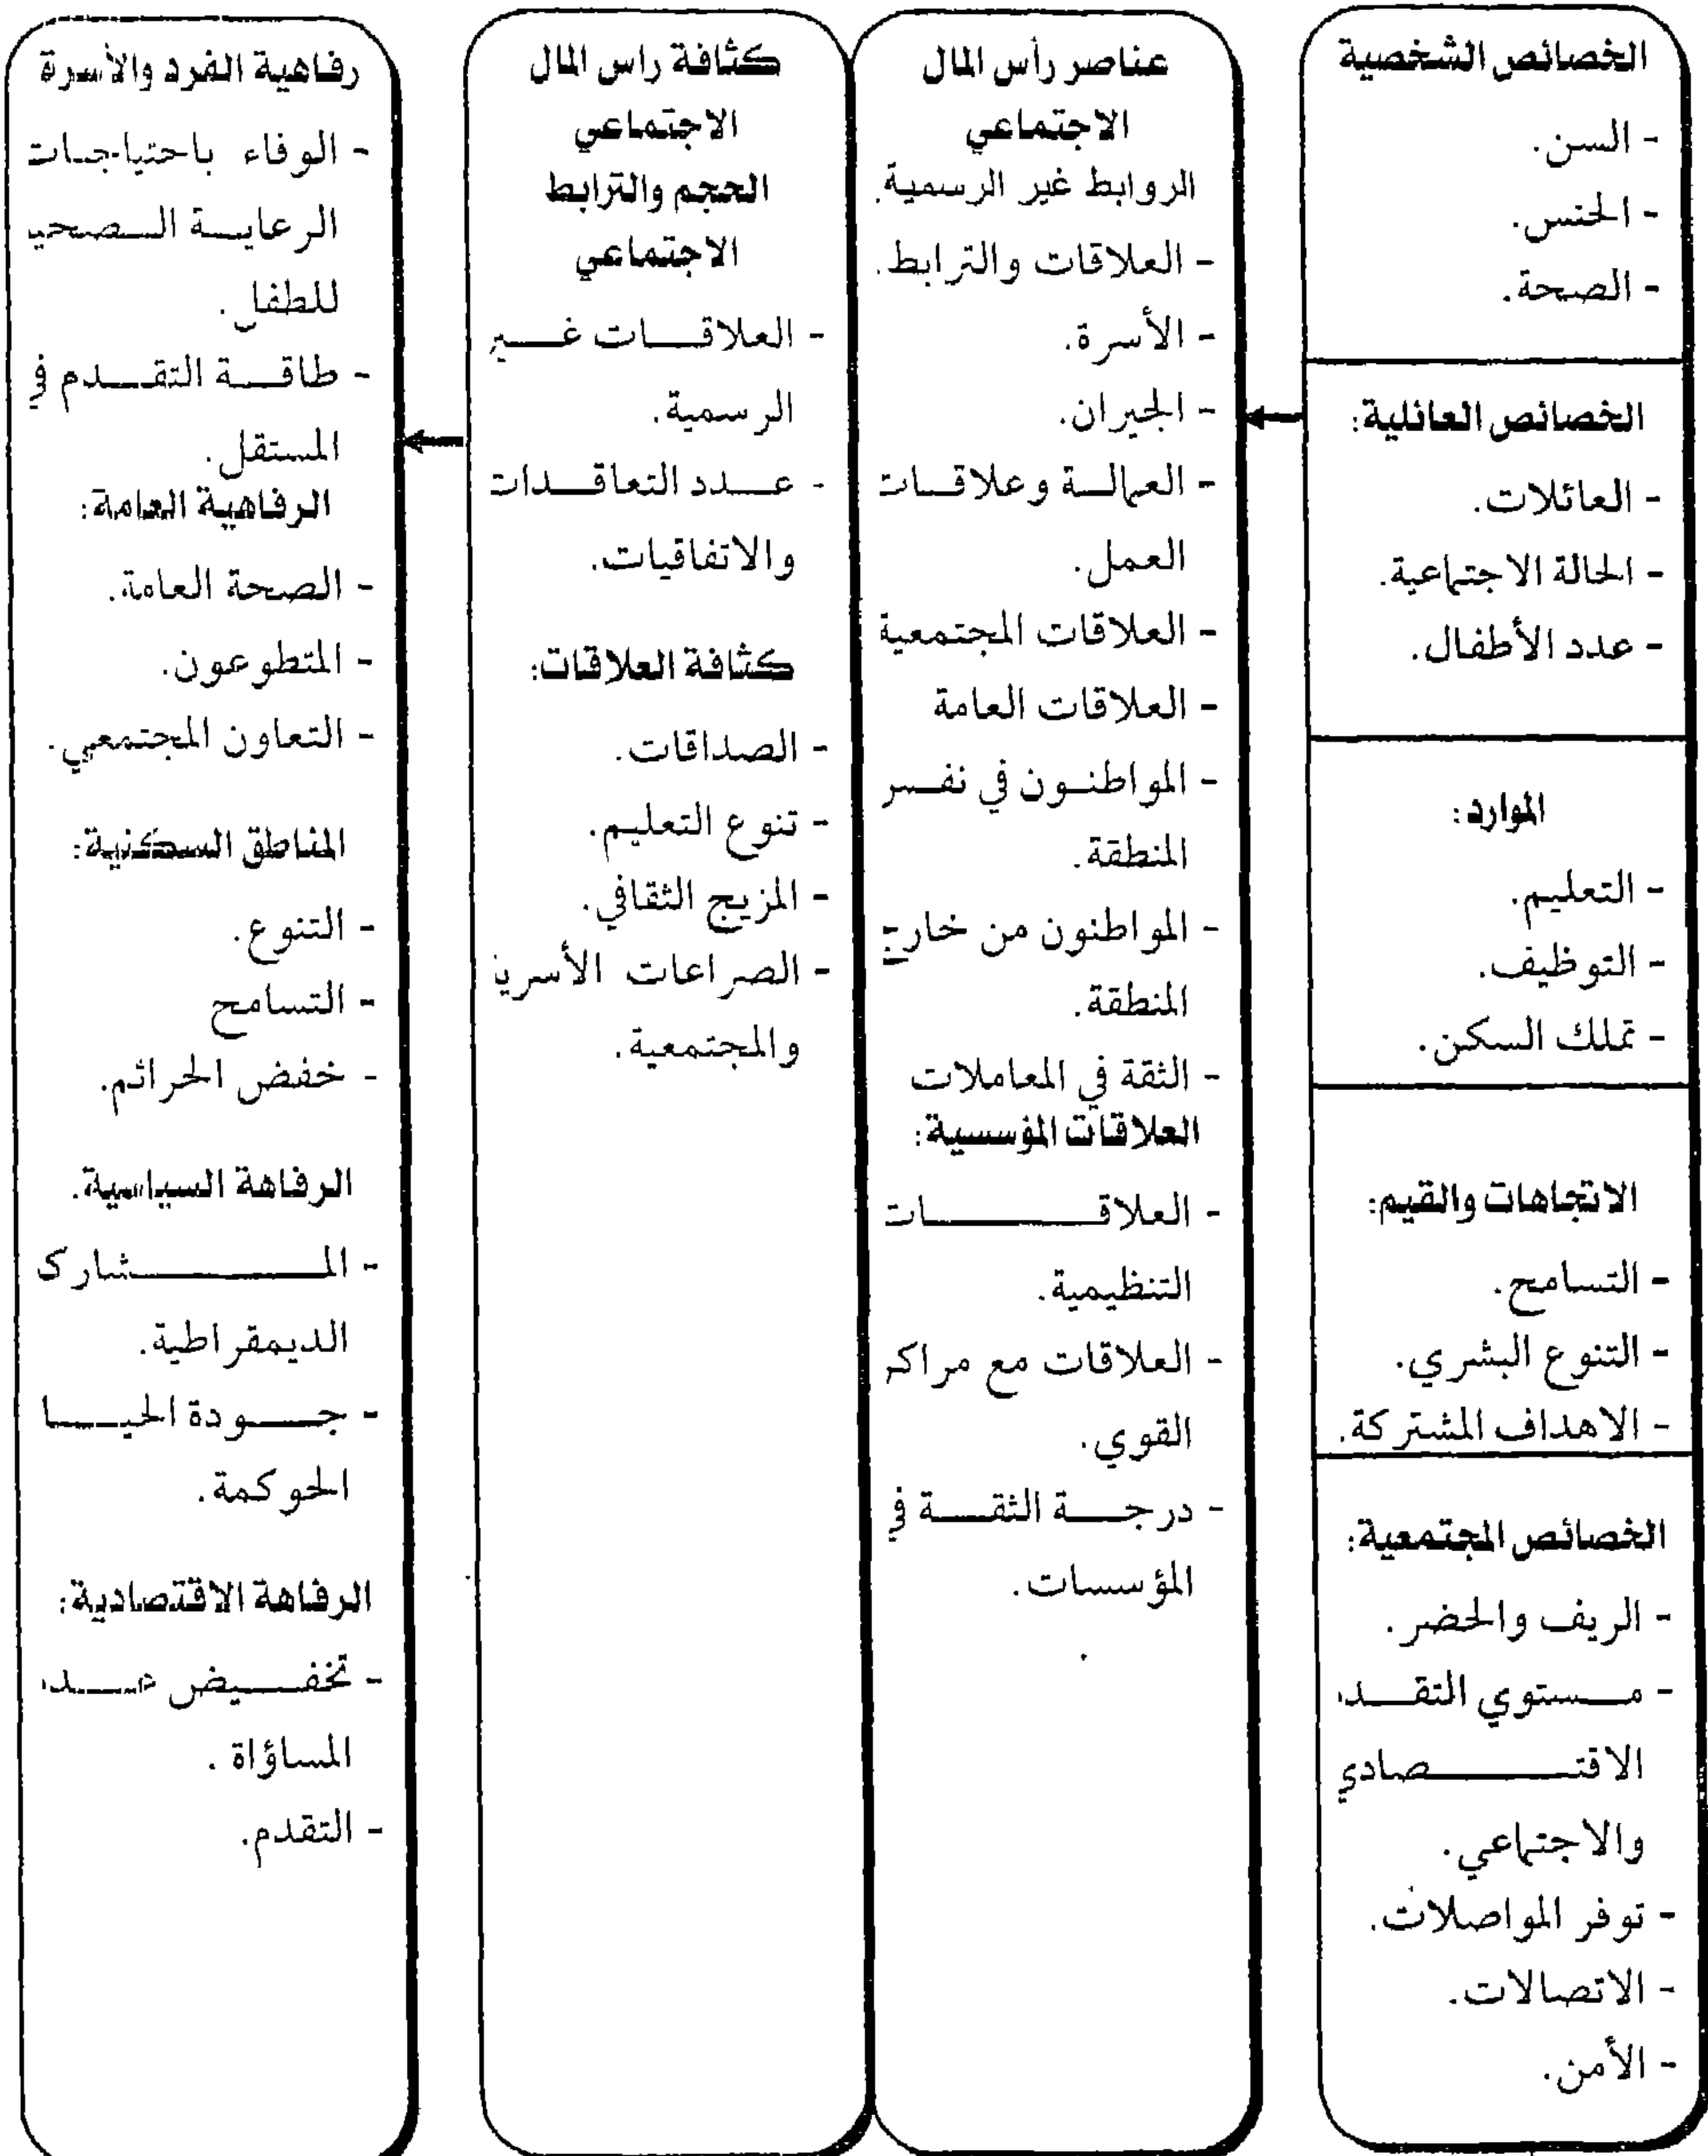 الخصائص الشخصية
- السن.
- الجنس.
- الصحة.
الخصائص العائلية:
- العائلات.
- الحالة الاجتماعية.
- عدد الأطفال.
الموارد:
- التعليم.
- التوظيف.
- تملك السكن.
الاتجاهات والقيم:
- التسامح.
- التنوع البشري.
- الاهداف المشتركة.
الخصائص المجتمعية:
- الريف والحضر.
- مستوي
الاقتصادي
والاجتماعي.
- توفر المواصلات.
- الاتصالات.
- الأمن.
عناصر رأس المال
الاجتماعي
الروابط غير الرسمية.
- العلاقات والترابط.
- الأسرة.
- الجيران.
- العمالة وعلاقات
العمل.
- العلاقات المجتمعية
- العلاقات العامة
- المواطنون في
المنطقة.
- المواطنون من خارج
المنطقة.
- الثقة في المعاملات
العلاقات المؤسسية:
- العلاقات
التنظيمية.
- العلاقات مع
القوي.
- درجة الثقة في
المؤسسات.
كثافة راس المال
الاجتماعي
الحجم والترابط
الاجتماعي
- العلاقات غير
الرسمية.
- عدد التعاقدات
والاتفاقيات.
كثافة العلاقات:
- الصداقات.
- تنوع التعليم.
- المزيج الثقافي.
- الصراعات
والمجتمعية.
رفاهية الفرد والأسرة
- الوفاء باحتياجات
الرعاية
للطفل.
- طاقة التقدم في
المستقل.
الرفاهية العامة:
- الصحة العامة.
- المتطوعون.
- التعاون المجتمعي.
المناطق السكنية:
- التنوع.
- التسامح
- خفض الجرائم.
الرفاهة السياسية.
-
الديمقراطية.
- جودة
الحوكمة.
الرفاهة الاقتصادية:
- تخفيض
المساؤاة .
- التقدم.